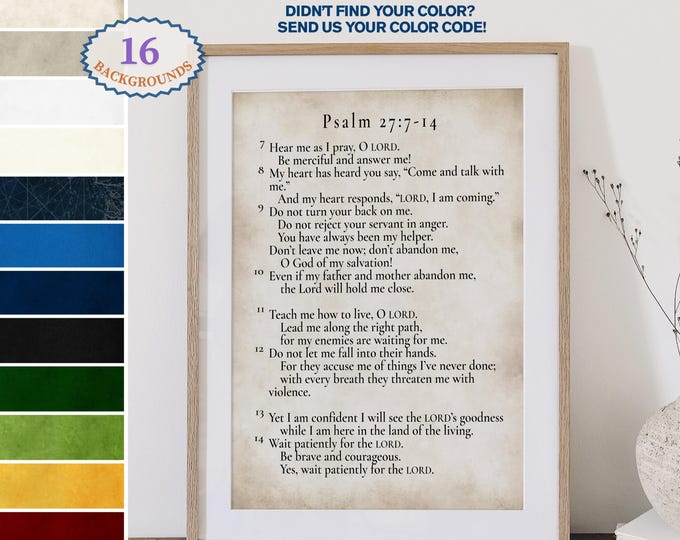 DIDN'T FIND YOUR COLOR?
SEND US YOUR COLOR CODE!
16
BACKGROUNDS
Psalm 27:7-14
7 Hear me as I pray, O LORD.
Be merciful and answer me!
8 My heart has heard you say, “Come and talk with
me.”
And my heart responds, “LORD, I am coming.”
9 Do not turn your back on me.
Do not reject your servant in anger.
You have always been my helper.
Don’t leave me now; don’t abandon me,
O God of my salvation!
10 Even if my father and mother abandon me,
the Lord will hold me close.
11 Teach me how to live, O LORD.
Lead me along the right path,
for my enemies are waiting for me.
12 Do not let me fall into their hands.
For they accuse me of things I’ve never done;
with every breath they threaten me with
violence.
13 Yet I am confident I will see the LORD’s goodness
while I am here in the land of the living.
14 Wait patiently for the LORD.
Be brave and courageous.
Yes, wait patiently for the LORD.